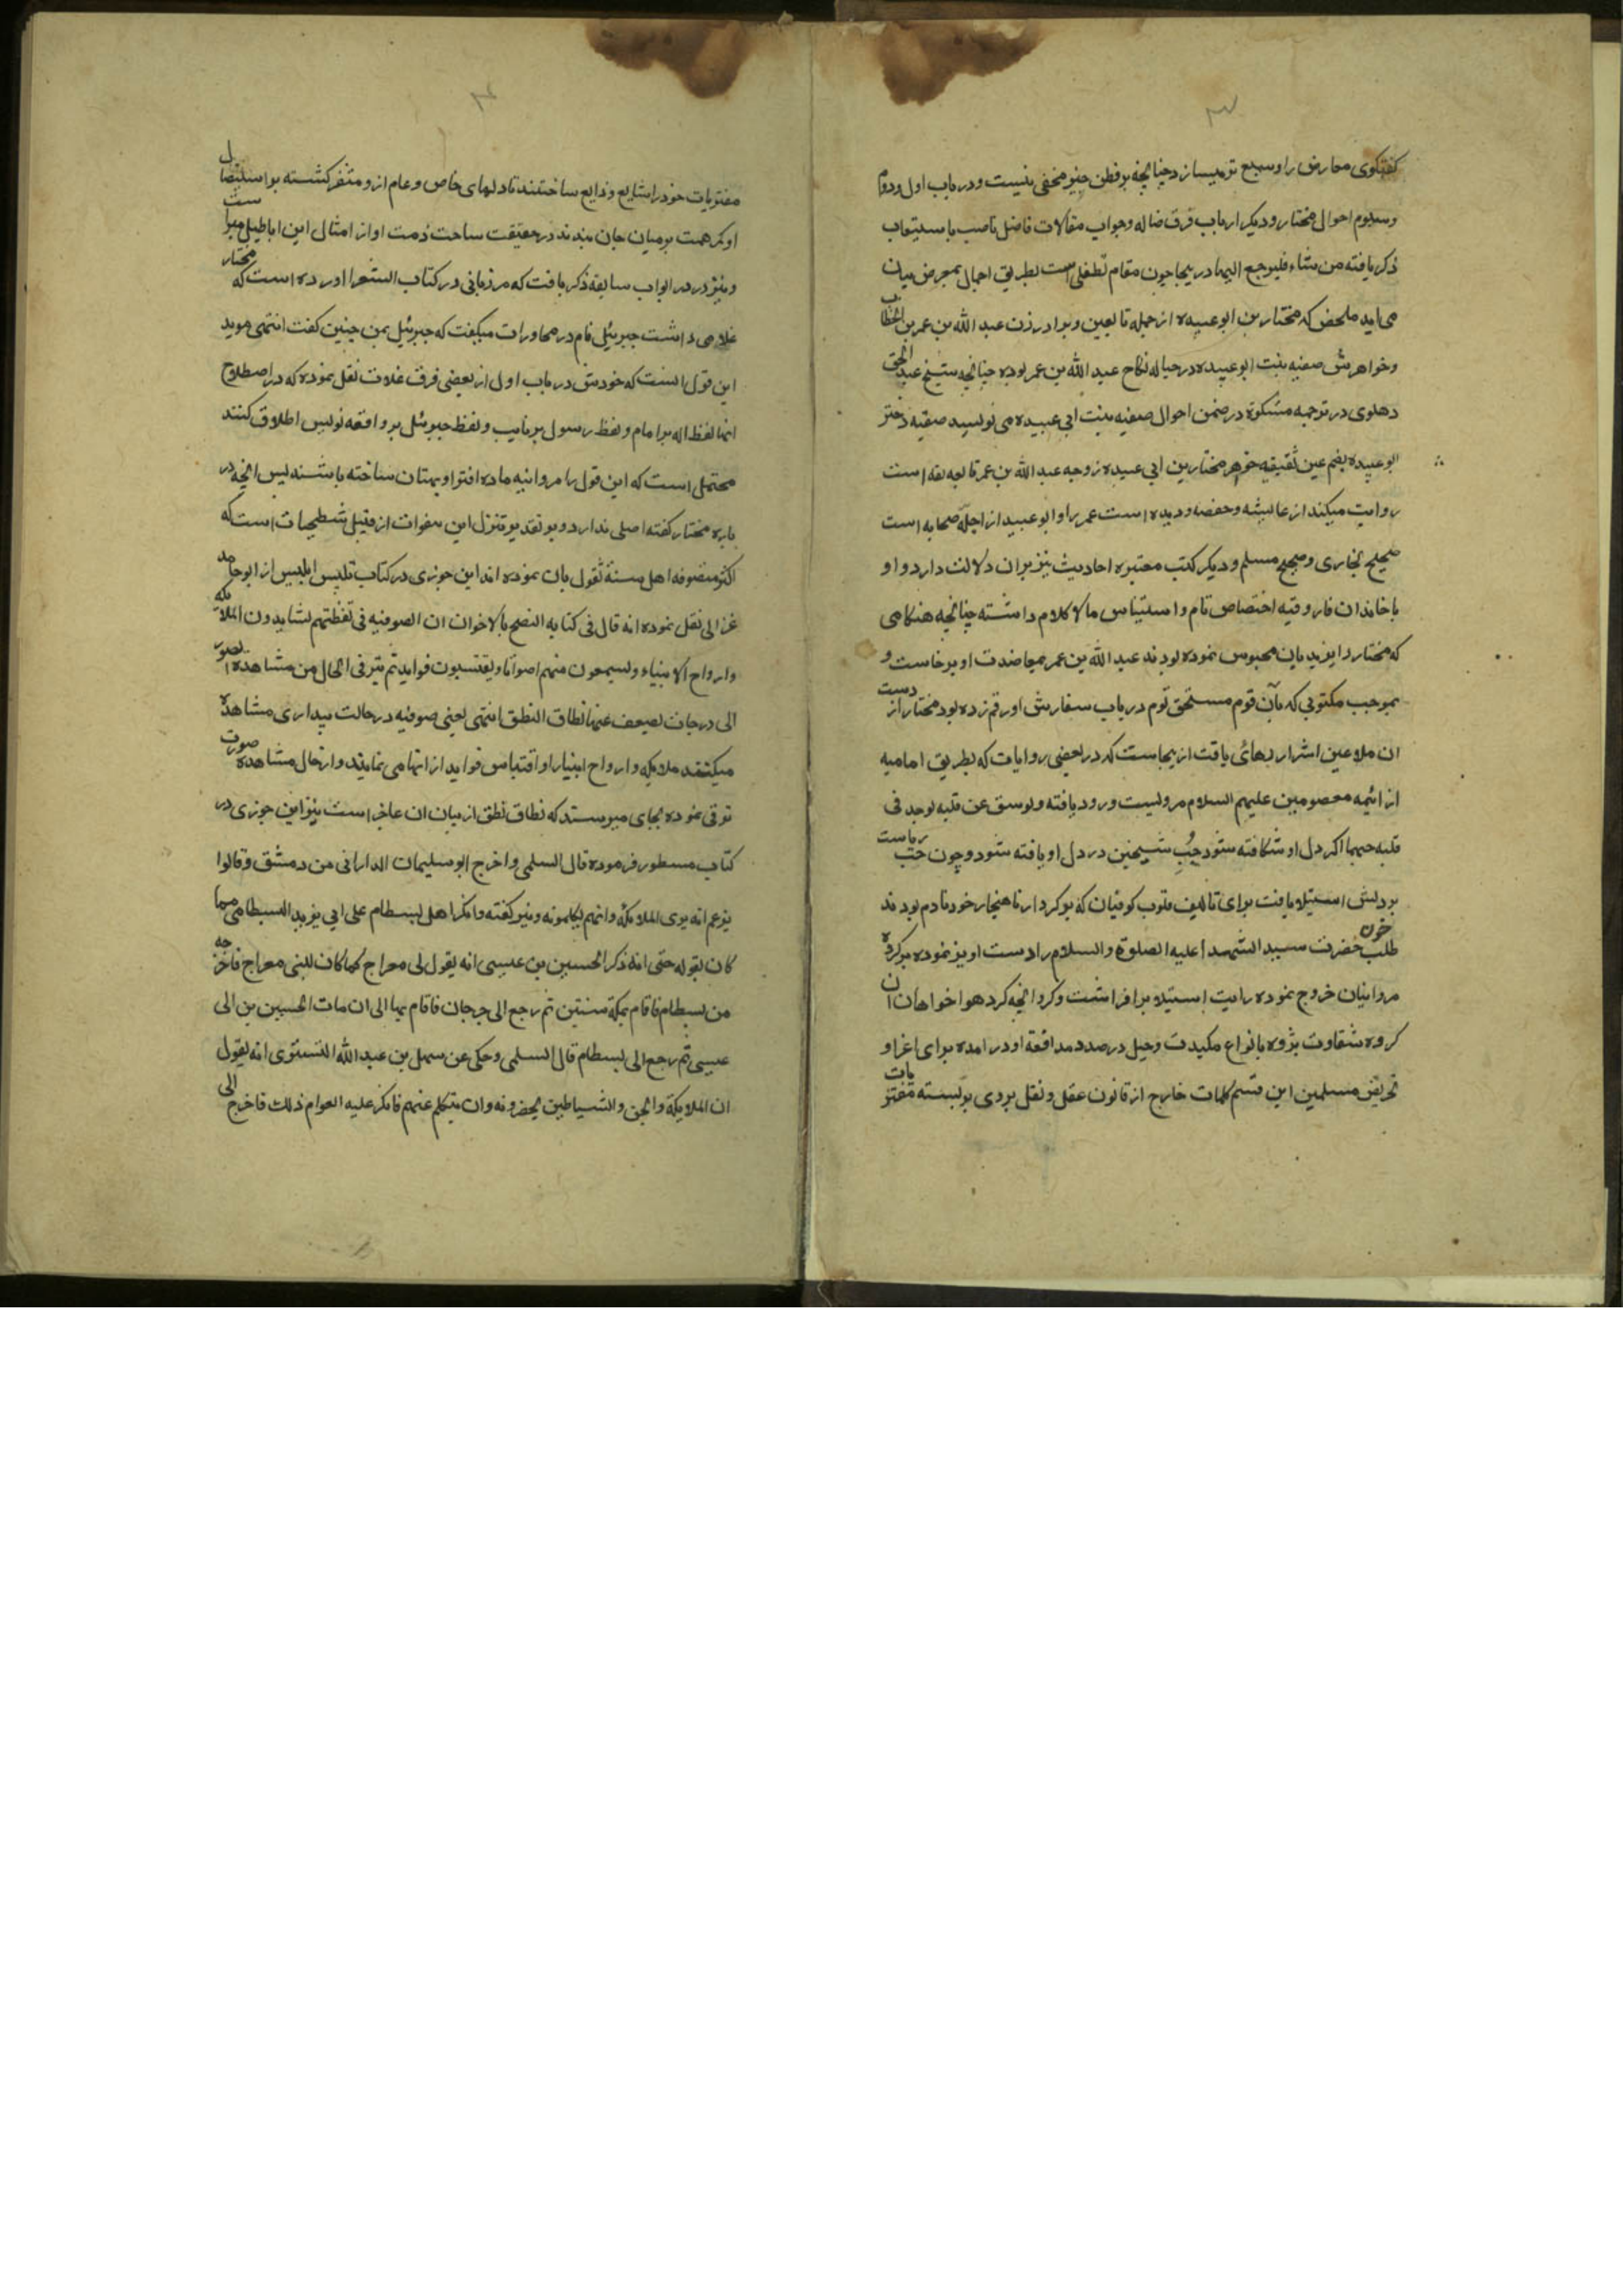 ۳
کفتکوی معارض را وسیع ترمیسازد چنانچه بر فطن خبیر مخفی نیست و در باب اول و دوم
و سیوم احوال مختار و دیکر ارباب فرق ضاله و جواب مقالات فاضل ناصب باستیعاب
ذکر یافته من شاء فلیرجع الیها در ینجا چون مقام تطفلی است بطریق اجمال بمعرض بیان
می اید ملخص که مختار بن ابو عبیده از جمله تابعین و برادر زن عبد الله بن عمر بن الخطاب
و خواهرش صفیه بنت ابو عبیده در حباله نکاح عبد الله بن عمر بوده چنانچه شیخ عبد الحق
دهلوی در ترجمه مشکوة در ضمن احوال صفیه بنت ابی عبیده می نویسد صفیه دختر
ابو عبیده بضم عین ثقیفیه خواهر مختار بن ابی عبیده زوجه عبد الله بن عمر تابعه ثقه است
روایت میکند از عایشه و حفصه و دیده است عمر را و ابو عبید از اجله صحابه است
صحیح بخاری و صحیح مسلم و دیکر کتب معتبره احادیث نیز بران دلالت دارد و او
با خاندان فاروقیه اختصاص تام و استیناس مالا کلام داشته چنانچه هنکامی
که مختار را یزیدیان محبوس نموده بودند عبد الله بن عمر بمعاضدت او برخاست و
بموجب مکتوبی که بآن قوم مستحق لوم در باب سفارش او رقم زده بود مختار از دست
ان ملاعین اشرار رهائی یافت از ینجاست که در بعضی روایات که بطریق امامیه
از ائمه معصومین علیهم السلام مرویست ورود یافته ولو شق عن قلبه لوجد فی
قلبه حبهما اکر دل او شکافته شود حُبِ شیخین در دل او یافته شود و چون حب ریاست
بر دلش استیلا یافت برای تالیف قلوب کوفیان که بر کردار ناهنجار خود نادم بودند
طلب خون حضرت سید الشهدا علیه الصلوة والسلام را دست اویز نموده بر کروه
مروانیان خروج نموده رایت استیلا برافراشت و کرد انچه کرد هواخواهان ان
کروه شقاوت پژوه بانواع مکیدت و حیل در صدد مدافعه او در امده برای اغراو
تحریض مسلمین این قسم کلمات خارج از قانون عقل و نقل بر وی بر بسته مفتریات
۴
مفتریات خود را شایع و ذایع ساختند تا دلهای خاص و عام از و متنفر کشته بر استیصال
او کمر همت بر میان جان بندند در حقیقت ساحت ذمت او از امثال این اباطیل مبراست
و نیز در در ابواب سابقه ذکر یافت که مرزبانی در کتاب الشعرا اورده است که مختار
غلامی داشت جبرئیل نام در محاورات میکفت که جبرئیل بمن چنین کفت انتهی موید
این قول انست که خودش در باب اول از بعضی فرق غلات نقل نموده که در اصطلاح
انها لفظ اله برامام و لفظ رسول بر نایب و لفظ جبرئیل بر واقعه نویس اطلاق کنند
محتمل است که این قول را مروانیه ماده افترا و بهتان ساخته باشند پس انچه در
باره مختار کفته اصلی ندارد و بر تقدیر تنزل این هفوات از قبیل شطحیات است که
اکثر متصوفه اهل سنة تقول بان نموده اند ابن جوزی در کتاب تلبیس ابلیس از ابو حامد
غزالی نقل نموده انه قال فی کتابه النصح بالاخوان ان الصوفیه فی تقظتهم لشاهدون الملائکه
وارواح الانبیاء ولسیمعون منهم اصواتا ویقتسبون فواید ثم یترقی الحال من مشاهدة الصور
الی درجات یضیق عنها نطاق النطق انتهی یعنی صوفیه در حالت بیداری مشاهده
میکنند ملایکه و ارواح انبیارا و اقتباس فواید از انها می نمایند و از حال مشاهده صورت
ترقی نموده بجای میرسند که نطاق نطق از بیان ان عاجز است نیز ابن جوزی در
کتاب مسطور فرموده قال السلمی واخرج ابو سلیمان الدارانی من دمشق وقالوا
یزعم انه یری الملائکه وانهم یکلمونه و نیز کفته وانکر اهل بسطام علی ابی یزید البسطامی مما
کان یقوله حتی انه ذکر الحسین بن عیسی انه یقول لی معراج کما کان للنبی معراج فاخرجه
من بسطام فاقام بمکة سنتین ثم رجع الی جرجان فاقام بها الی ان مات الحسین بن
عیسی ثم رجع الی بسطام قال السلمی وحکی عن سهل بن عبد الله التستری انه یقول
ان الملایکة والجن والشیاطین یحضرونه وان یتکلم عنهم فانکر علیه العوام ذلک فاخرج الی